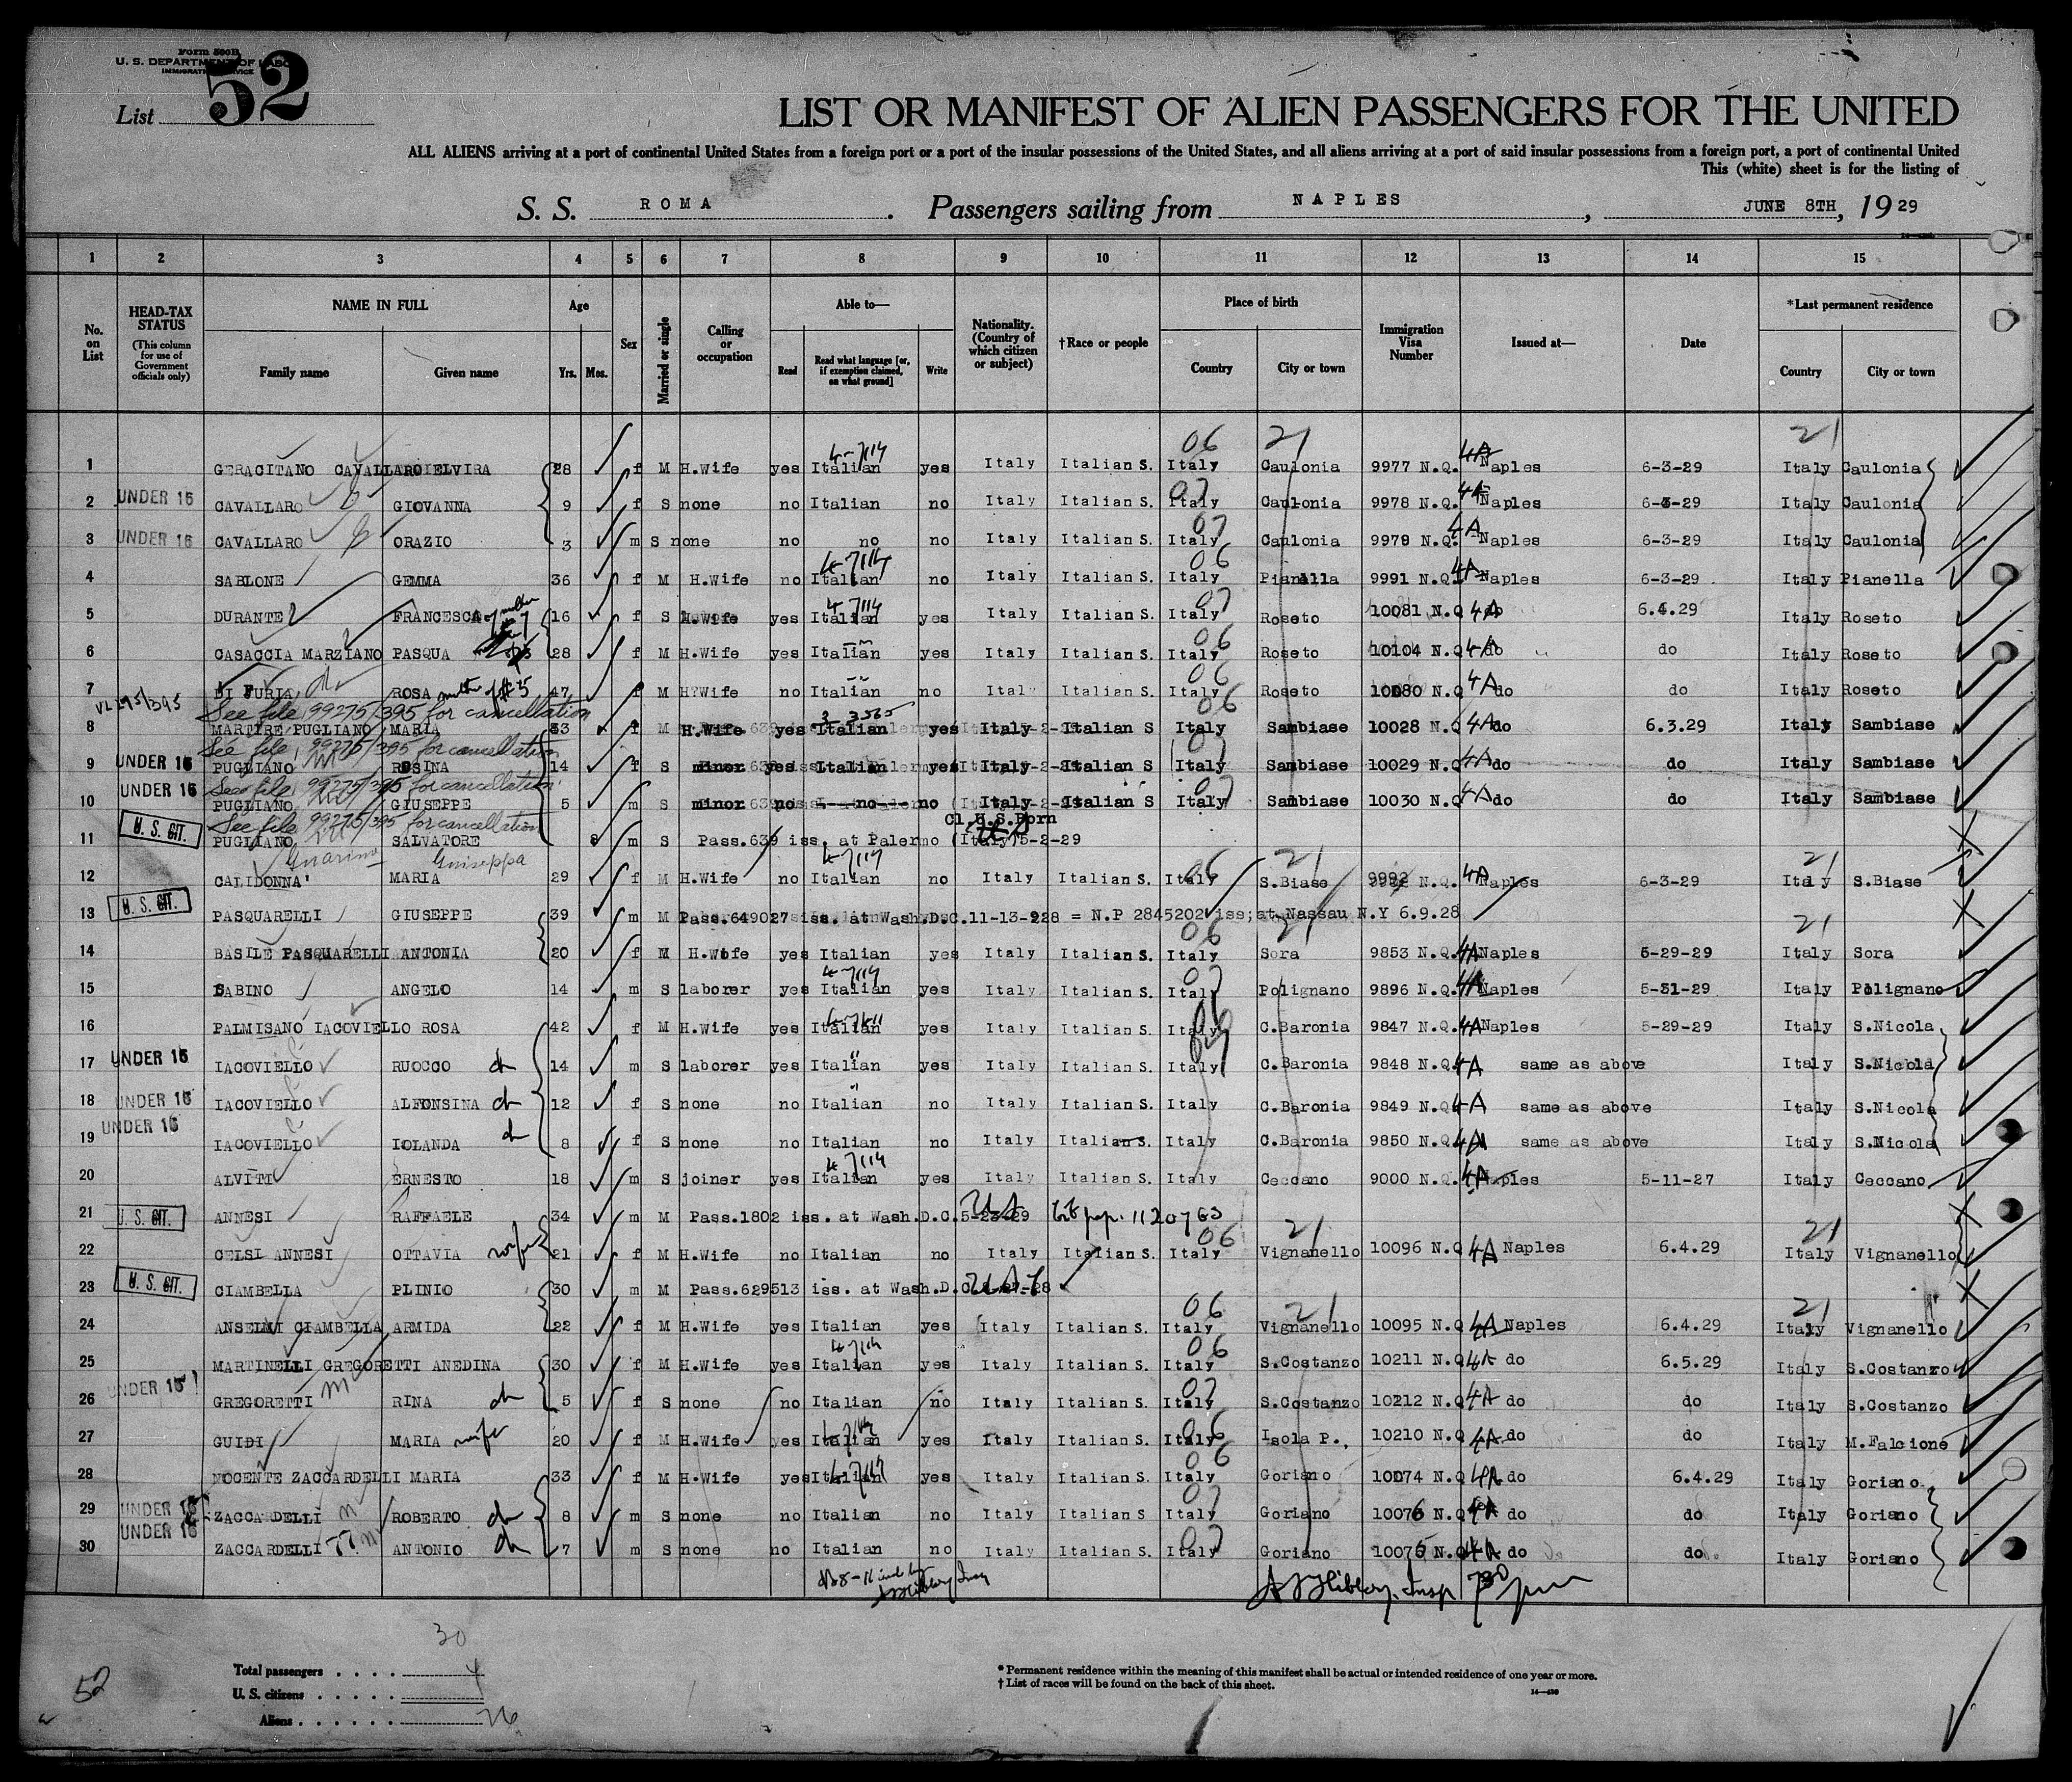 Form 500B
U. S. DEPARTMENT OF LABOR
IMMIGRATION SERVICE
List 52
LIST OR MANIFEST OF ALIEN PASSENGERS FOR THE UNITED
ALL ALIENS arriving at a port of continental United States from a foreign port or a port of the insular possessions of the United States, and all aliens arriving at a port of said insular possessions from a foreign port, a port of continental United
This (white) sheet is for the listing of
S. S. ROMA. Passengers sailing from NAPLES, JUNE 8TH, 1929
1 2 3 4 5 6 7 8 9 10 11 12 13 14 15
No. on List
HEAD-TAX STATUS (This column for use of Government officials only)
NAME IN FULL Family name Given name
Age Yrs. Mos.
Sex
Married or single
Calling or occupation
Able to— Read Read what language [or, if exemption claimed, on what ground] Write
Nationality. (Country of which citizen or subject)
†Race or people
Place of birth Country City or town
Immigration Visa Number
Issued at—
Date
*Last permanent residence Country City or town
06 21 21
1 GERACITANO CAVALLARO ELVIRA 28 f M H.Wife yes Italian yes Italy Italian S. Italy Caulonia 9977 N.Q. 4A Naples 6-3-29 Italy Caulonia
2 UNDER 16 CAVALLARO GIOVANNA 9 f S none no Italian no Italy Italian S. Italy Caulonia 9978 N.Q. 4A Naples 6-3-29 Italy Caulonia
3 UNDER 16 CAVALLARO ORAZIO 3 m S none no no no Italy Italian S. Italy Caulonia 9979 N.Q. 4A Naples 6-3-29 Italy Caulonia
4 SABLONE GEMMA 36 f M H.Wife no Italian no Italy Italian S. Italy Pianella 9991 N.Q. 4A Naples 6-3-29 Italy Pianella
5 DURANTE FRANCESCA 16 f S H.Wife yes Italian yes Italy Italian S. Italy Roseto 10081 N.Q 4A do 6.4.29 Italy Roseto
6 CASACCIA MARZIANO PASQUA 28 f M H.Wife yes Italian yes Italy Italian S. Italy Roseto 10104 N.Q 4A do do Italy Roseto
7 DI FURIA ROSA mother of #5 47 f M H.Wife no Italian no Italy Italian S. Italy Roseto 10080 N.Q 4A do do Italy Roseto
See file 99275/395 for cancellation
8 MARTIRE PUGLIANO MARIA 33 f M H.Wife yes Italian yes Italy Italian S Italy Sambiase 10028 N.Q 4A do 6.3.29 Italy Sambiase
See file 99275/395 for cancellation
9 UNDER 16 PUGLIANO ROSINA 14 f S minor yes Italian yes Italy Italian S Italy Sambiase 10029 N.Q 4A do do Italy Sambiase
See file 99275/395 for cancellation
10 UNDER 16 PUGLIANO GIUSEPPE 5 m S minor no no no Italy Italian S Italy Sambiase 10030 N.Q 4A do do Italy Sambiase
See file 99275/395 for cancellation
Cl.U.S.Born
11 U. S. CIT. PUGLIANO SALVATORE 8 m S Pass.639 iss. at Palermo (Italy)5-2-29
Guarino Guiseppa
12 CALIDONNA' MARIA 29 f M H.Wife no Italian no Italy Italian S. Italy S.Biase 9992 N.Q. 4A Naples 6-3-29 Italy S.Biase
13 U. S. CIT. PASQUARELLI GIUSEPPE 39 m M Pass.649027 iss. at Wash.D.C.11-13-928 = N.P 2845202 iss;at Nassau N.Y 6.9.28
14 BASILE PASQUARELLI ANTONIA 20 f M H.Wife yes Italian yes Italy Italian S. Italy Sora 9853 N.Q. 4A Naples 5-29-29 Italy Sora
15 SABINO ANGELO 14 m S laborer yes Italian yes Italy Italian S. Italy Polignano 9896 N.Q. 4A Naples 5-31-29 Italy Polignano
16 PALMISANO IACOVIELLO ROSA 42 f M H.Wife yes Italian yes Italy Italian S. Italy C.Baronia 9847 N.Q. 4A Naples 5-29-29 Italy S.Nicola
17 UNDER 16 IACOVIELLO RUOCCO ch 14 m S laborer yes Italian yes Italy Italian S. Italy C.Baronia 9848 N.Q. 4A same as above Italy S.Nicola
18 UNDER 16 IACOVIELLO ALFONSINA ch 12 f S none no Italian no Italy Italian S. Italy C.Baronia 9849 N.Q 4A same as above Italy S.Nicola
19 UNDER 16 IACOVIELLO IOLANDA ch 8 f S none no Italian no Italy Italian S. Italy C.Baronia 9850 N.Q. 4A same as above Italy S.Nicola
20 ALVITI ERNESTO 18 m S joiner yes Italian yes Italy Italian S. Italy Ceccano 9000 N.Q. 4A Naples 5-11-27 Italy Ceccano
21 U. S. CIT. ANNESI RAFFAELE 34 m M Pass.1802 iss. at Wash.D.C.5-23-29
22 CELSI ANNESI OTTAVIA wife 21 f M H.Wife no Italian no Italy Italian S. Italy Vignanello 10096 N.Q 4A Naples 6.4.29 Italy Vignanello
23 U. S. CIT. CIAMBELLA PLINIO 30 m M Pass.629513 iss. at Wash.D.C.
24 ANSELMI CIAMBELLA ARMIDA 22 f M H.Wife yes Italian yes Italy Italian S. Italy Vignanello 10095 N.Q 4A Naples 6.4.29 Italy Vignanello
25 MARTINELLI GREGORETTI ANEDINA 30 f M H.Wife yes Italian yes Italy Italian S. Italy S.Costanzo 10211 N.Q 4A do 6.5.29 Italy S.Costanzo
26 UNDER 16 GREGORETTI RINA ch 5 f S none no Italian no Italy Italian S. Italy S.Costanzo 10212 N.Q 4A do do Italy S.Costanzo
27 GUIDI MARIA wife 20 f M H.Wife yes Italian yes Italy Italian S. Italy Isola P., 10210 N.Q 4A do do Italy M.Falcione
28 NOCENTE ZACCARDELLI MARIA 33 f M H.Wife yes Italian yes Italy Italian S. Italy Goriano 10074 N.Q 4A do 6.4.29 Italy Goriano.
29 UNDER 16 ZACCARDELLI ROBERTO ch 8 m S none no Italian no Italy Italian S Italy Goriano 10076 N.Q 4A do do Italy Goriano
30 UNDER 16 ZACCARDELLI ANTONIO ch 7 m S none no Italian no Italy Italian S. Italy Goriano 10075 N.Q 4A do do Italy Goriano
30
Total passengers . . . .
U. S. citizens . . . . . 4
Aliens . . . . . . 26
52
* Permanent residence within the meaning of this manifest shall be actual or intended residence of one year or more.
† List of races will be found on the back of this sheet.